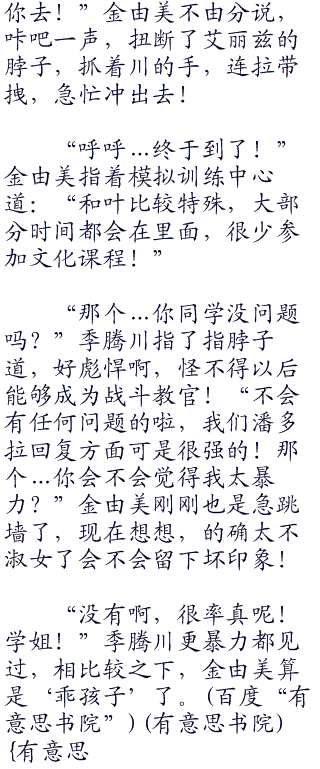 你去！”金由美不由分说，
咔吧一声，扭断了艾丽兹的
脖子，抓着川的手，连拉带
拽，急忙冲出去！
“呼呼...终于到了！”
金由美指着模拟训练中心
道：“和叶比较特殊，大部
分时间都会在里面，很少参
加文化课程！”
“那个...你同学没问题
吗？”季腾川指了指脖子
道，好彪悍啊，怪不得以后
能够成为战斗教官！“不会
有任何问题的啦，我们潘多
拉回复方面可是很强的！那
个...你会不会觉得我太暴
力？”金由美刚刚也是急跳
墙了，现在想想，的确太不
淑女了会不会留下坏印象！
“没有啊，很率真呢！
学姐！”季腾川更暴力都见
过，相比较之下，金由美算
是‘乖孩子’了。(百度“有
意思书院”)(有意思书院)
{有意思